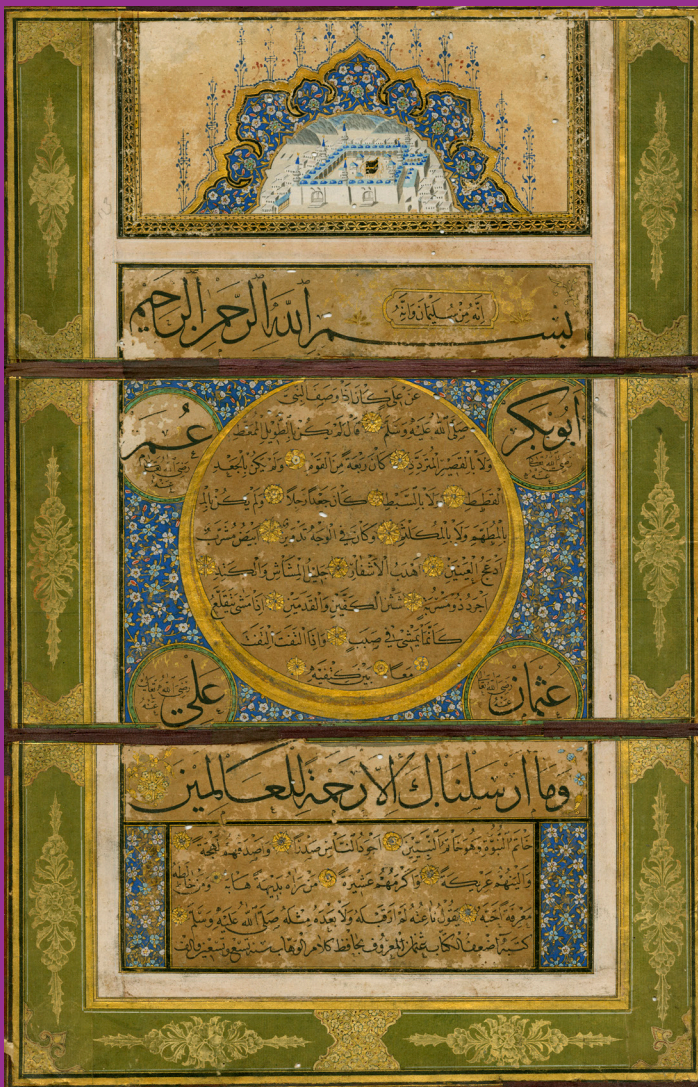 إِنَّهُ مِنْ سُلَيْمٰنَ وَإِنَّهُ
بسم الله الرحمن الرحيم
ابوبكر
رضي الله تعالى عنه
عمر
رضي الله تعالى عنه
عن علي كان اذا وصف النبي
صلى الله عليه وسلم قال لم يكن بالطويل الممغط
ولا بالقصير المتردد كان ربعة من القوم ولم يكن بالجعد
القطط ولا بالسبط كان جعدا رجلا ولم يكن
بالمطهم ولا بالمكلثم وكان في الوجه تدوير ابيض مشرب
ادعج العينين اهدب الاشفار جليل المشاش والكتد
اجرد ذو مسربة شثن الكفين والقدمين اذا مشى يتقلع
كانما يمشي في صبب واذا التفت التفت
معا بين كتفيه
عثمان
رضي الله تعالى عنه
علي
رضي الله تعالى عنه
وما ارسلناك الا رحمة للعالمين
خاتم النبوة وهو خاتم النبيين اجود الناس صدرا واصدقهم لهجة
والينهم عريكة واكرمهم عشيرة من رآه بديهة هابه ومن خالطه
معرفة احبه يقول ناعته لم ار قبله ولا بعده مثله صلى الله عليه وسلم
كتبه اضعف الكتاب عثمان المعروف بحافظ كلام الوهاب سنة تسع وتسعين والف